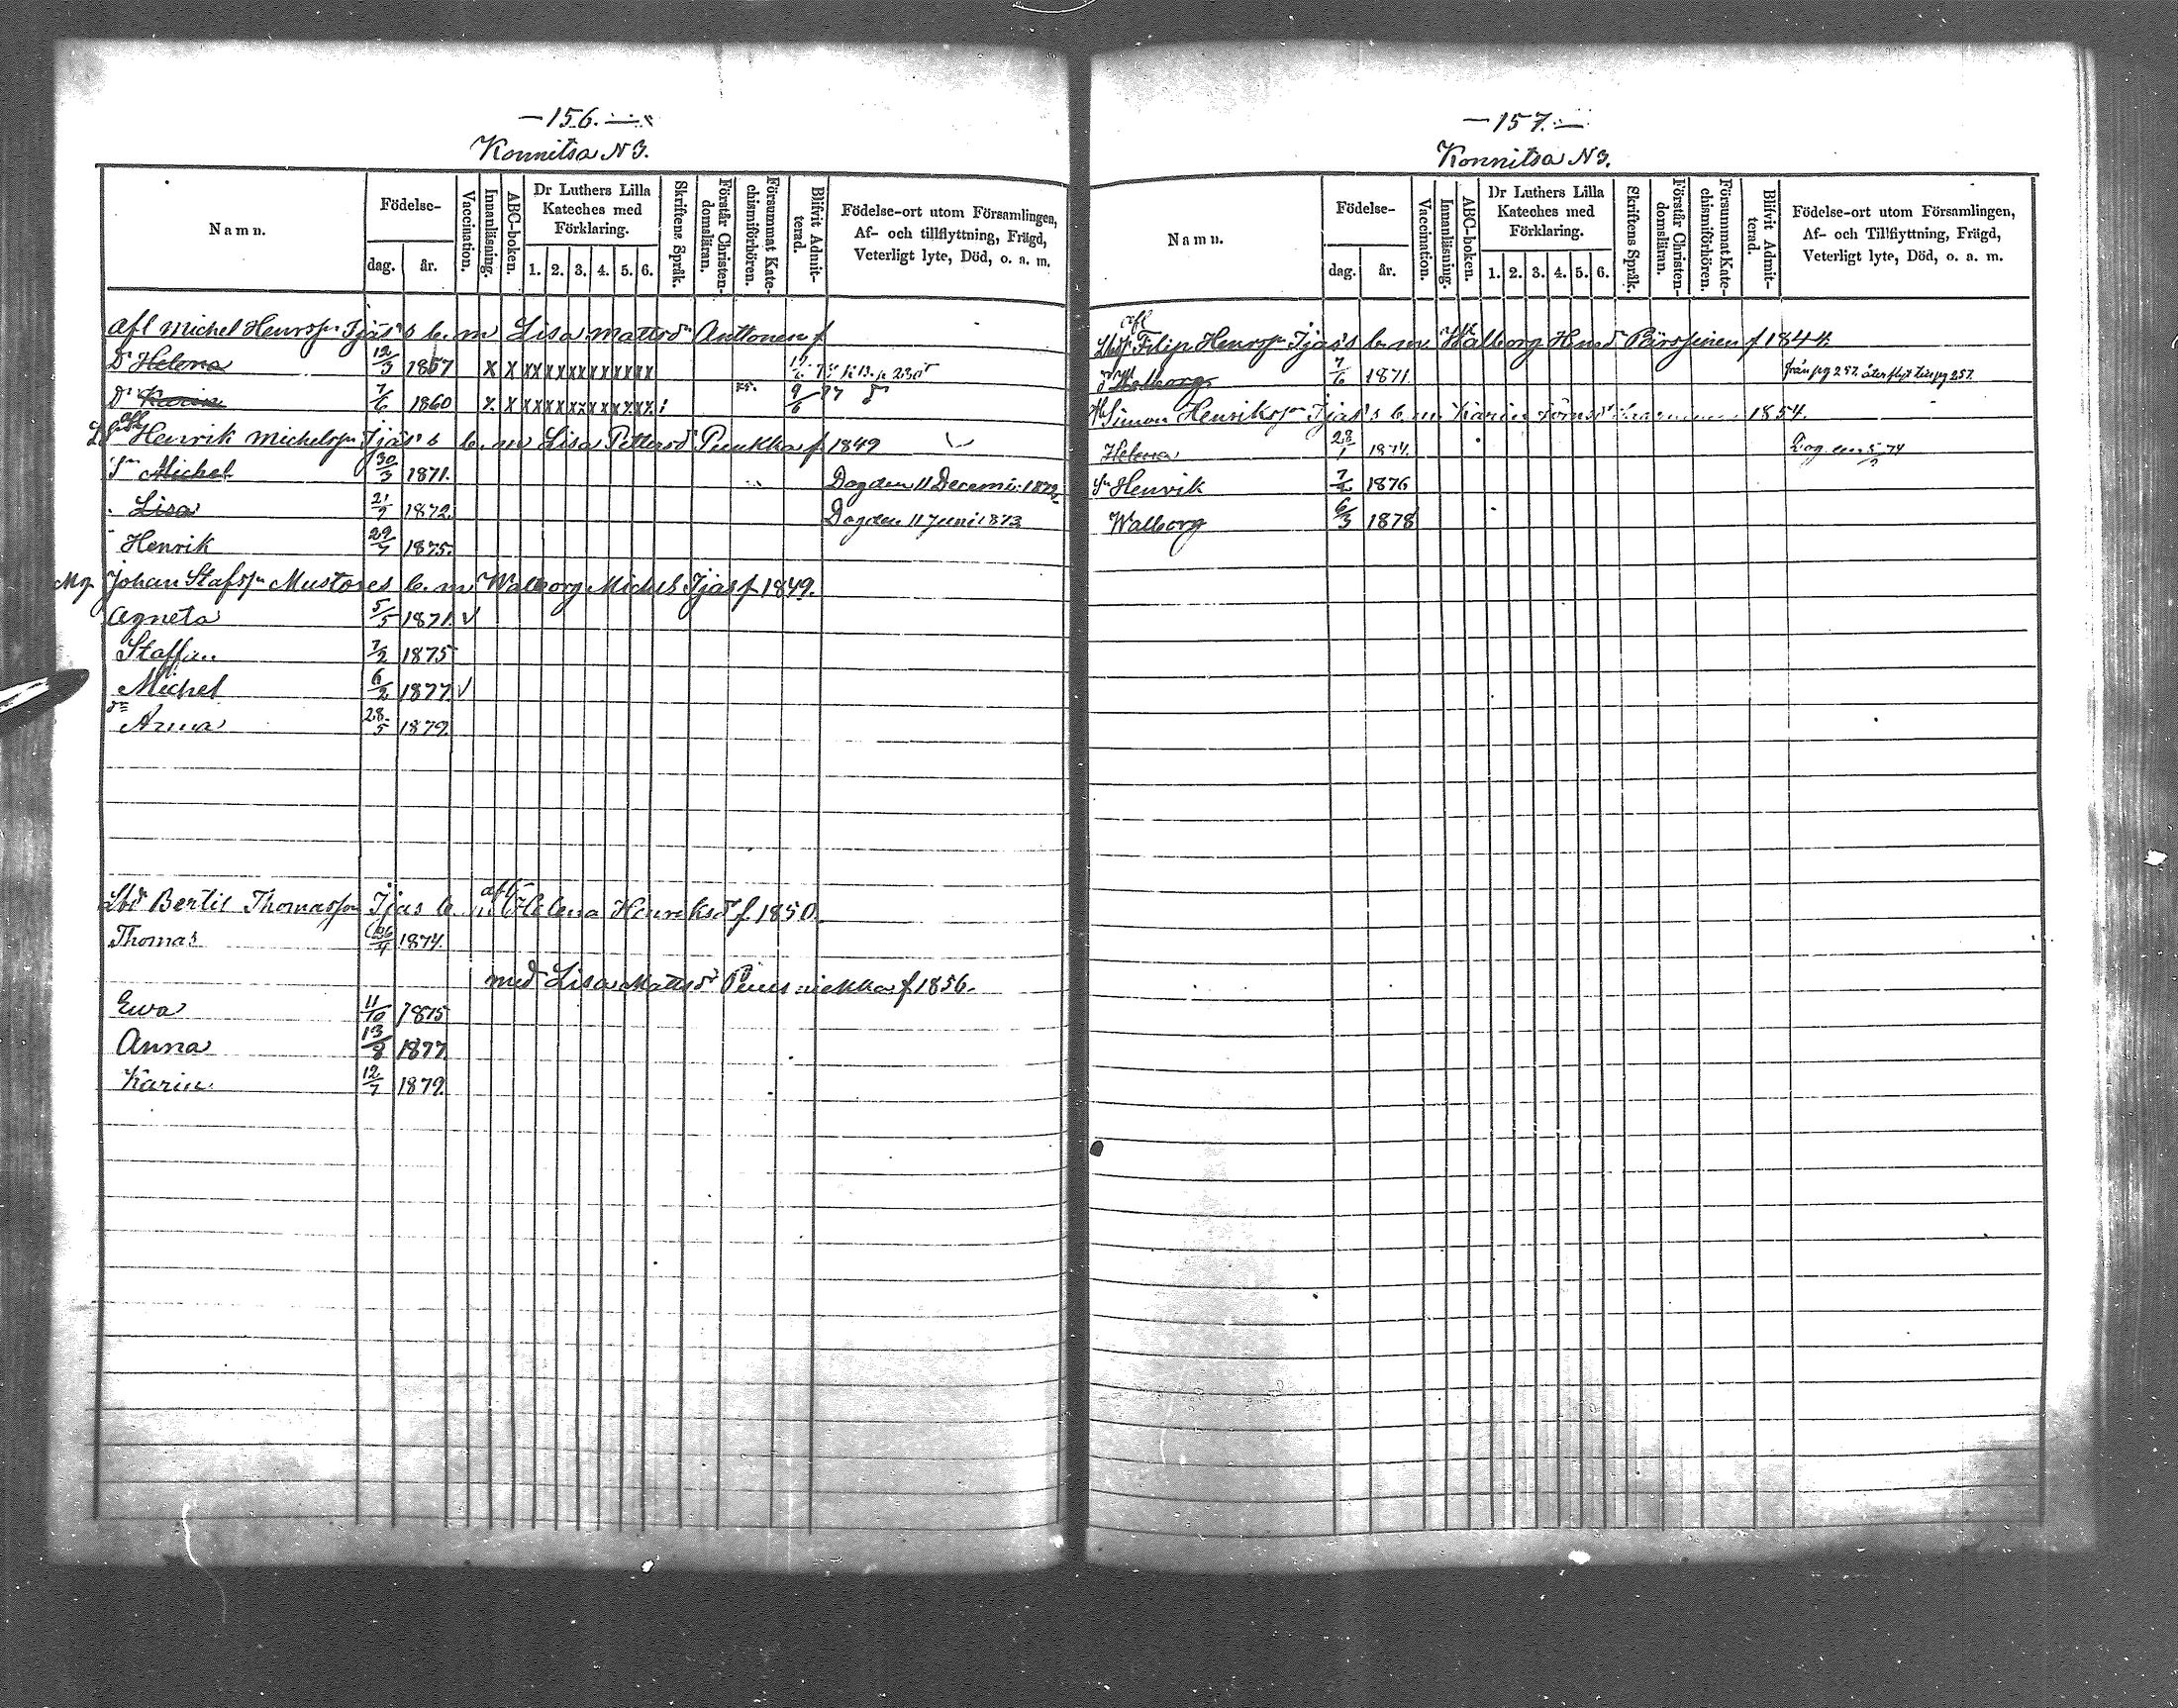 —156.—
Konnitsa N 3.
Namn.
Födelse-
dag.
år.
Vaccination.
Innanläsning.
ABC-boken.
Dr Luthers Lilla
Kateches med
Förklaring.
1. 2. 3. 4. 5. 6.
Skriftens Språk.
Förstår Christen-
domsläran.
Försummat Kate-
chismiförhören.
Blifvit Admit-
terad.
Födelse-ort utom Församlingen,
Af- och tillflyttning, Frägd,
Veterligt lyte, Död, o. a. m.
Afl Michel Henrssn Ijäs's b. m Lisa Mattsdr Anttonen f
Dr Helena 12/3 1857 x x xx xx xx xx xx xx
Dr Karin 7/6 1860 x x xx xx xx xx xx xx 9/6 77
afl
Henrik Michelssn Ijäs's b. m Lisa Pettersdr Puukka f. 1849
Sn Michel 30/3 1871. Dog den 11 Decemb. 1872
Lisa 1872 Dog den 11 Juni 1873
Henrik 29/7 1875.
Mg Johan Stafssn Mustores b. m Walborg Michels Ijas f 1849.
Agneta 5/5 1871. v
Staffan 7/2 1875
Michel 6/2 1877 v
dr Anna 28/5 1879.
Lbd Bertil Thomasson Ijas b. m afl Helena Henriksdr f. 1850.
Thomas 1874.
med Lisa Mattsdr f 1856.
Ewa 11/10 1875
Anna 13/8 1877
Karin 12/7 1879.
—157.—
Konnitsa N 3.
Namn.
Födelse-
dag.
år.
Vaccination.
Innanläsning.
ABC-boken.
Dr Luthers Lilla
Kateches med
Förklaring.
1. 2. 3. 4. 5. 6.
Skriftens Språk.
Förstår Christen-
domsläran.
Försummat Kate-
chismiförhören.
Blifvit Admit-
terad.
Födelse-ort utom Församlingen,
Af- och Tillflyttning, Frägd,
Veterligt lyte, Död, o. a. m.
afl
Filip Henrssn Ijäs's b. m. Walborg Henrsdr f 1844.
Walborg 7/6 1871. från pg 257. återflyt till pg 257.
Simon Henrikssn Ijäs's b. m Karin 1854.
Helena 28/1 1874. Dog den 74
Sn Henrik 7/2 1876
Walborg 6/3 1878